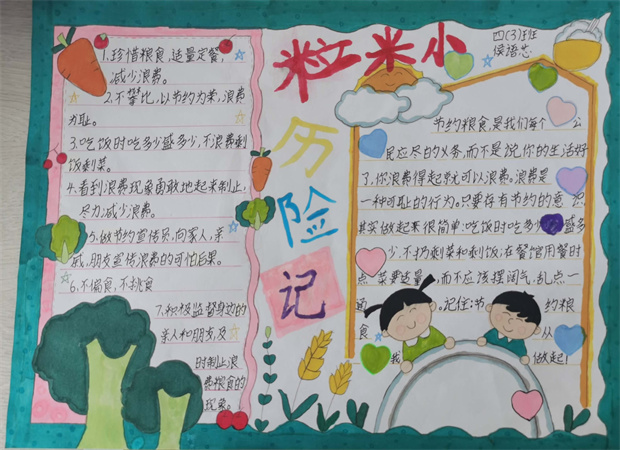 小米粒
历
险
记
四(3)班
侯语芯
1.珍惜粮食,适量定餐,
减少浪费。
2.不攀比,以节约为荣,浪费
为耻。
3.吃饭时吃多少盛多少,不浪费剩
饭剩菜。
4.看到浪费现象勇敢地起来制止,
尽力减少浪费。
5.做节约宣传员,向家人,亲
戚,朋友宣传浪费的可怕后果。
6.不偏食,不挑食
7.积极监督身边的
亲人和朋友,及
时制止浪
费粮食的
现象。
节约粮食,是我们每个 公
民应尽的义务,而不是说你的生活好
了,你浪费得起就可以浪费。浪费是
一种可耻的行为。只要存有节约的意 识
其实做起来很简单:吃饭时吃多少 盛多
少,不扔剩菜和剩饭;在餐馆用餐时
点 菜要适量,而不应该摆阔气,乱点一
通 。记住:节 约粮
食 从
我 做起!